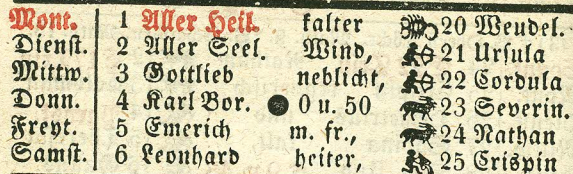 Mont. 1 Aller Heil. kalter 20 Wendel.
Dienst. 2 Aller Seel. Wind, 21 Ursula
Mittw. 3 Gottlieb neblicht, 22 Cordula
Donn. 4 Karl Bor. ● 0 u. 50 23 Severin.
Freyt. 5 Emerich m. fr., 24 Nathan
Samst. 6 Leonhard heiter, 25 Crispin